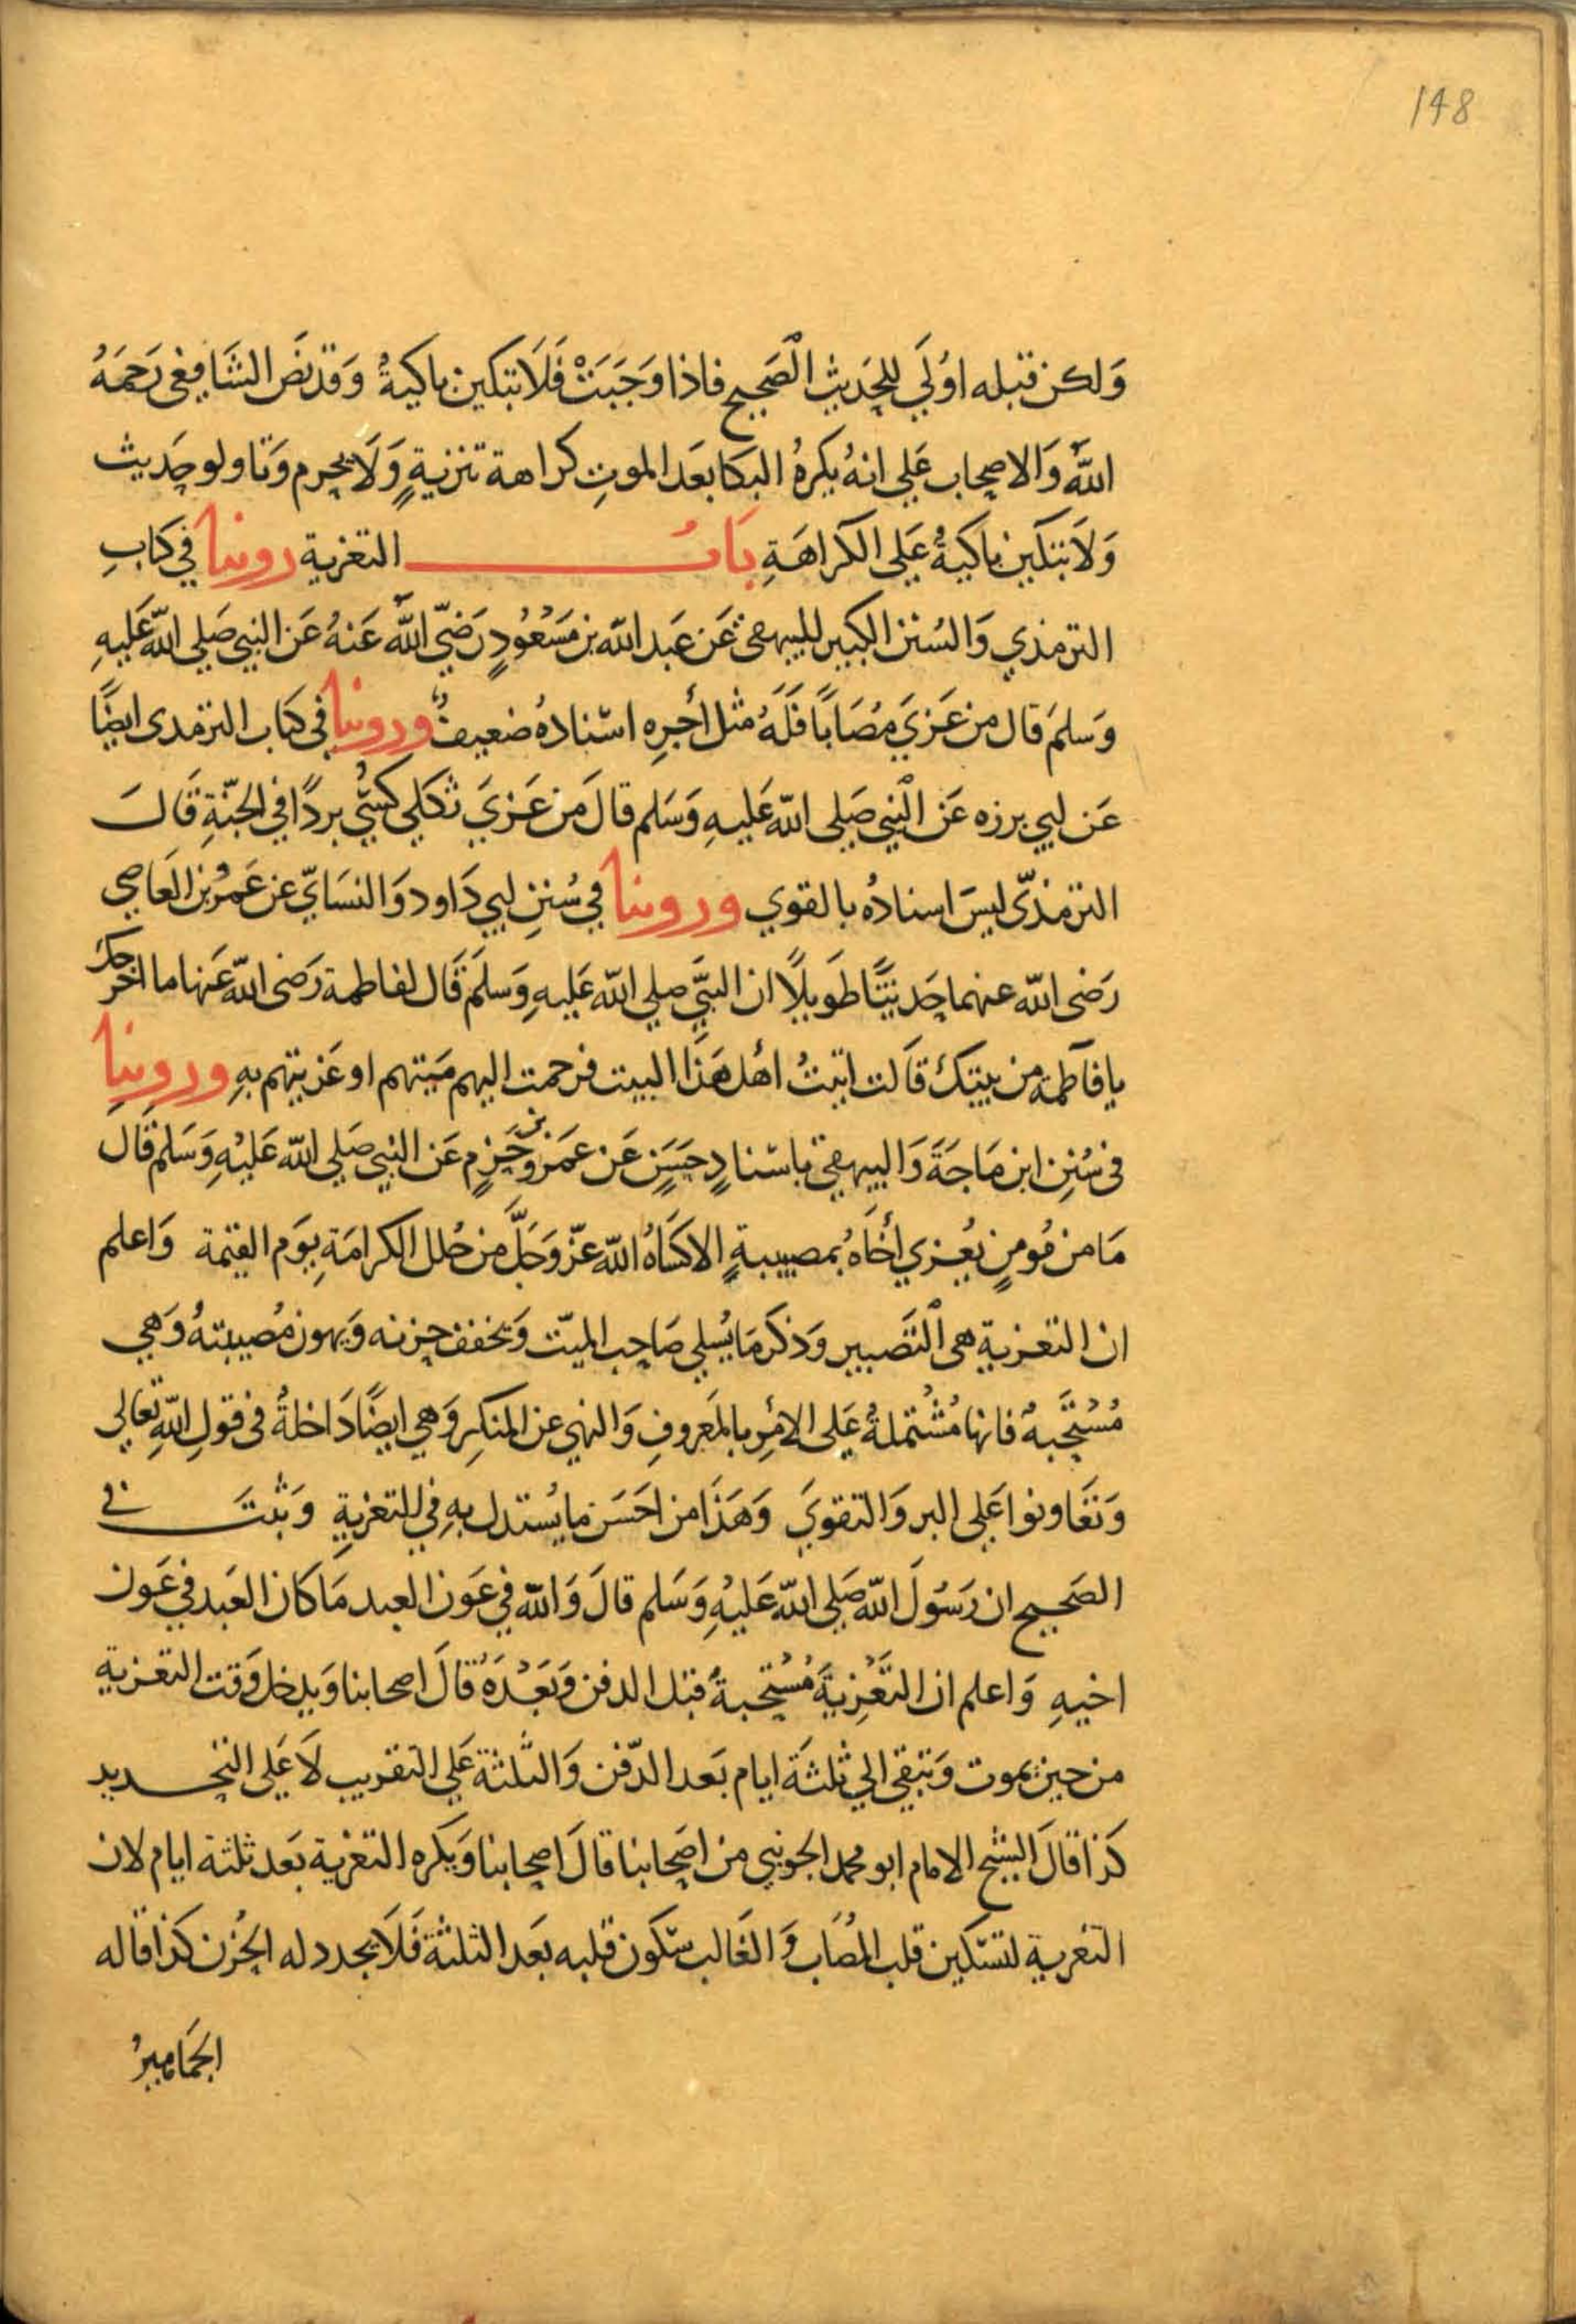 148
وَلكن قبله اوْلَي للحَديث الْصَحيح فاذا وَجَبَتْ فَلَا تبكين باكيةٌ وَقد نصَّ الشَافعى رَحمَهُ
اللهُ وَالاصحاب عَلي انهُ يكرهُ البكا بعَد الموتِ كراهة تنزيةٍ وَلَا يحرم وَتاولو حَديث
وَلَا تبكين باكيةٌ عَلى الكراهَةِ بَابُ التعزية روينا في كتابِ
الترمذي وَالسُنن الكبير للبيهقى عَن عَبد الله بن مَسْعُودٍ رَضيّ اللهُ عَنهُ عَن النبي صَلي الله عَليهِ
وَسَلمَ قال من عَزيَ مُصَابًا فَلَهُ مثل أجرِه اسْنادهُ ضعيفٌ وروينا في كتاب الترمدى ايضًا
عَن ابي برزه عَن الْنبي صَلي الله عَليهِ وَسَلم قالَ من عَزيَ ثكلي كسُي بردًا في الجنّةِ قَالَ
الترمذّى ليسَ اسنادُه بالقوي وروينا في سُننِ ابي دَاود وَالنسَايّ عن عَمرُ بن العَاصي
رَضى الله عنهما حَديثًا طَويلًا ان النبَّي صلي الله عَليهِ وَسلمَ قَال لفاطمة رَضى الله عَنها ما اخرجك
يا فاَطمة من بيتك قاَلت اتيتُ اهْل هَذَا البيت فرحمت اليهم مَيتهم او عَزيتهم بهِ وروينا
فى سُننِ ابن مَاجَةَ وَالبيهقي باسْنادٍ حسَنٍ عَن عمَرو بن حَزمٍ عَن النبي صَلي الله عَليْهِ وَسَلم قال
مَا من مُومنٍ يُعزي أخَاهُ بمصيبةٍ الا كسَاهُ الله عزّ وَجَلَّ من حُلل الكرامَةِ يوَم القيمة وَاعلم
ان التعزية هى الْتَصبير وَذكر مَا يُسلي صَاحِب الميّت وَيخفف حزنه وَيهون مُصيبتهُ وَهي
مُسْتحَّبةٌ فانها مُشْتملةٌ عَلى الامْرِ بالمَعروفِ وَالنهي عن المنكرِ وَهي ايضًا دَاخلةٌ فى قولِ اللهِ تعالى
وَتعَاونوا عَلى البر وَالتقويَ وَهَذَا من احَسَن ما يُستدل بهِ في التعزيةِ وَثبتَ فى
الصَحيح ان رَسُولَ الله صَلي الله عَليْهِ وَسَلم قالَ وَالله في عَون العبد مَا كان العَبد في عَون
اخيهِ وَاعلم ان التَعْزِيةَ مُسْتحَبةٌ قبل الدفن وَبَعْدَهُ قالَ اصحابنا وَيدخل وَقت التعزية
من حين يموت وَتبقي الي ثلثَةَ ايام بَعد الدّفن وَالثّلثة عَلي التقريب لَا عَلي التحديد
كَذا قالَ الشيخ الامام ابو محمد الجويني من اصَحابنا قالَ اصحابنا وَيكره التعزية بَعد ثلثة ايام لان
التعزية لتسْكين قلب المُصَاب وَالغَالب سْكون قلبه بَعد الثلثة فَلَا يجدد له الحُزن كذَا قاله
الجَمَاهيرُ